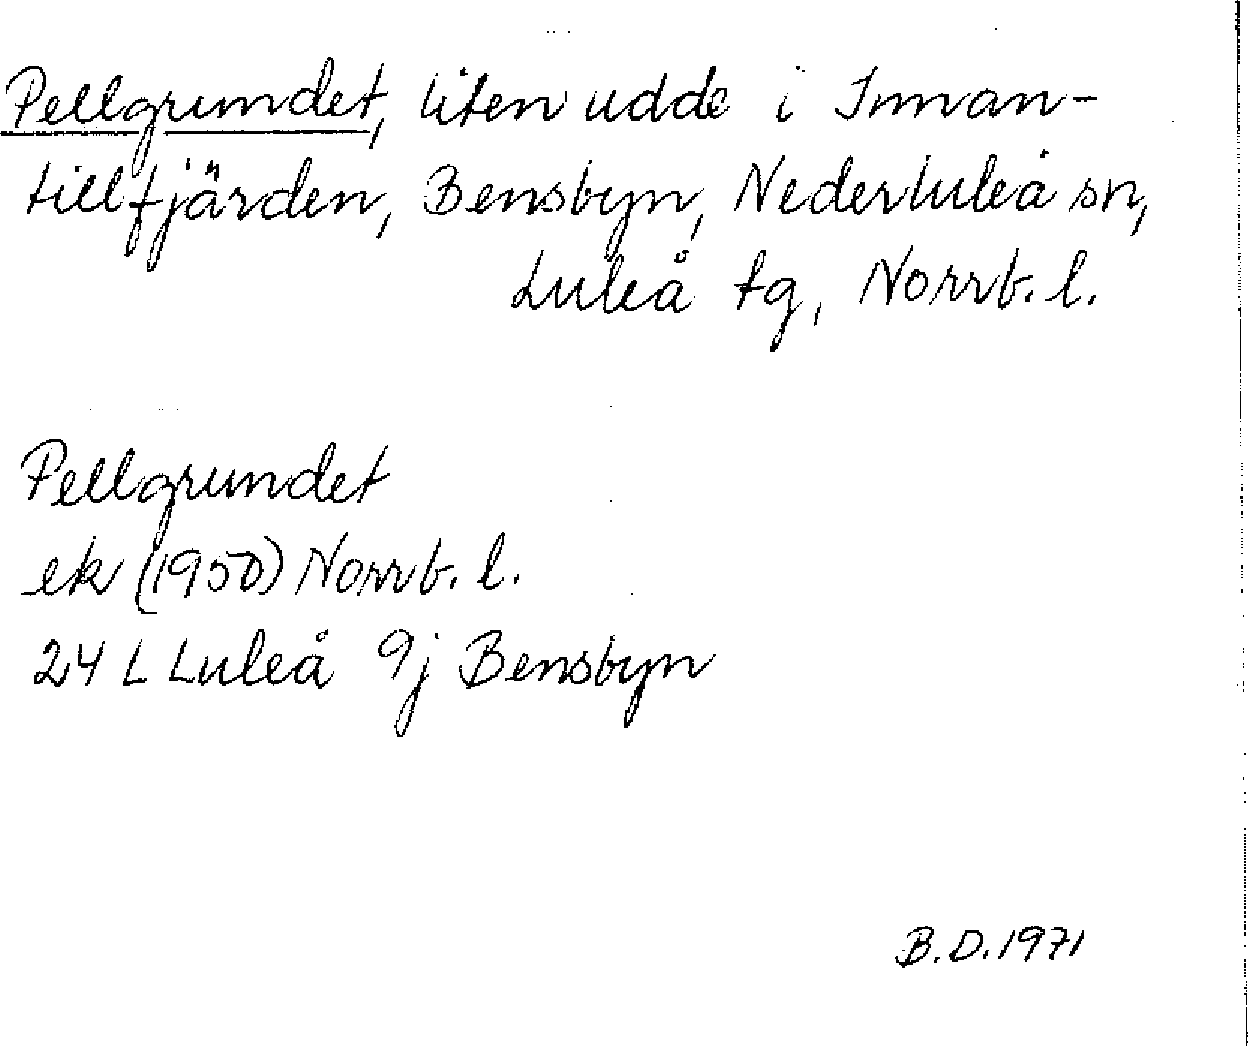 Pellgrundet, liten udde i Innan-
tillfjärden, Bensbyn, Nederluleå sn,
Luleå tg, Norrb. l.
Pellgrundet
ek (1950) Norrb. l.
24 L Luleå 9j Bensbyn
B.D. 1971